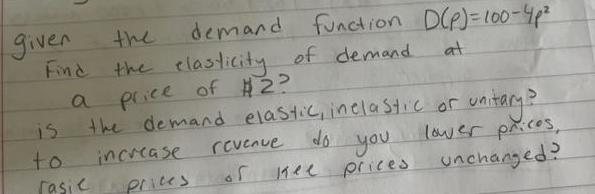 given the demand function D(p)=100-4p²
Find the elasticity of demand at
a price of $2?
is the demand elastic, inelastic or unitary?
to increase revenue do you lower prices,
rasie prices or kee prices unchanged?